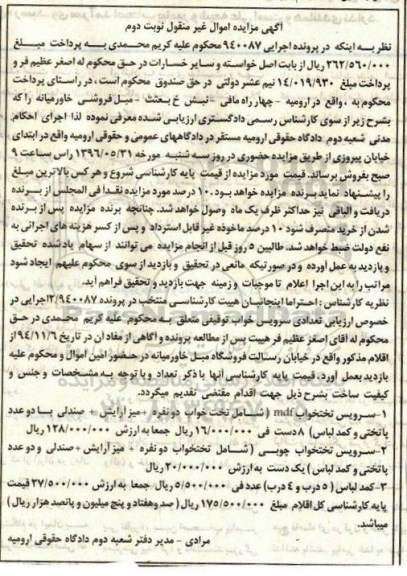 آگهی مزایده اموال غیر منقول نوبت دوم
نظر به اینکه در پرونده اجرایی ۹۴۰۰۸۷ محکوم علیه کریم محمدی به پرداخت مبلغ
۲۶۲/۵۶۰/۰۰۰ ریال از بابت اصل خواسته و سایر خسارات در حق محکوم له اصغر عظیم فر و
پرداخت مبلغ ۱۴/۰۱۹/۹۳۰ نیم عشر دولتی در حق صندوق محکوم است، در راستای پرداخت
محکوم به ، واقع در ارومیه - چهار راه مافی - نبش خ بعثت - مبل فروشی خاورمیانه را که
بشرح زیر از سوی کارشناس رسمی دادگستری ارزیابی شده معرفی نموده لذا اجرای احکام
مدنی شعبه دوم دادگاه حقوقی ارومیه مستقر در دادگاههای عمومی و حقوقی ارومیه واقع در ابتدای
خیابان پیروزی از طریق مزایده حضوری در روز سه شنبه مورخه ۱۳۹۶/۰۵/۳۱ راس ساعت ۹
صبح بفروش برساند. قیمت مورد مزایده از قیمت پایه کارشناسی شروع و هر کس بالاترین مبلغ
را پیشنهاد نماید برنده مزایده خواهد بود. ۱۰ درصد مورد مزایده نقدا فی المجلس از برنده
دریافت و الباقی نیز حداکثر ظرف یک ماه وصول خواهد شد. چنانچه برنده مزایده پس از برنده
شدن از خرید منصرف شود ۱۰ درصد ماخوذه غیر قابل استرداد و پس از کسر هزینه های اجرائی به
نفع دولت ضبط خواهد شد. طالبین ۵ روز قبل از انجام مزایده می توانند از سهام یاد شده تحقیق
و بازدید به عمل آورده و در صورتیکه مانعی در تحقیق و بازدید از سوی محکوم علیهم ایجاد شود
مراتب را به این اجرا اعلام تا موجبات و زمینه جهت بازدید و تحقیق فراهم آید.
نظریه کارشناس : احتراما اینجانبان هیبت کارشناسی منتخب در پرونده ۲/۹۴۰۰۸۷اجرایی در
خصوص ارزیابی تعدادی سرویس خواب توقیفی متعلق به محکوم علیه کریم محمدی در حق
محکوم له اقای اصغر عظیم فر هیبت پس از مطالعه پرونده و اگاهی از مفاد آن در تاریخ ۹۴/۱۱/۶ از
اقلام مذکور واقع در خیابان رسالت فروشگاه مبل خاورمیانه در حضور امین اموال و محکوم علیه
بازدید بعمل آورد. قیمت پایه کارشناسی آنها با ذکر تعداد و با توجه به مشخصات و جنس و
کیفیت ساخت بشرح ذیل جهت اقدام مقتضی تقدیم میگردد.
۱-سرویس تختخواب mdf (شامل تخت خواب دو نفره + میز آرایش + صندلی با دو عدد
پاتختی و کمد لباس) ۸ دست فی ۱۶/۰۰۰/۰۰۰ ریال جمعا به ارزش ۱۲۸/۰۰۰/۰۰۰ ریال
۲-سرویس تختخواب چوبی (شامل تختخواب دو نفره + میز آرایش + صندلی و دو عدد
پاتختی و کمد لباس ) یک دست به ارزش ۲۰/۰۰۰/۰۰۰ ریال
۳-کمد لباس ( ۵ درب و ۴ درب) عدد فی ۵/۵۰۰/۰۰۰ ریال جمعا به ارزش ۲۷/۵۰۰/۰۰۰ قیمت
پایه کارشناسی کل اقلام مبلغ ۱۷۵/۵۰۰/۰۰۰ ریال ( صد و هفتاد و پنج میلیون و پانصد هزار ریال )
میباشد.
مرادی - مدیر دفتر شعبه دوم دادگاه حقوقی ارومیه